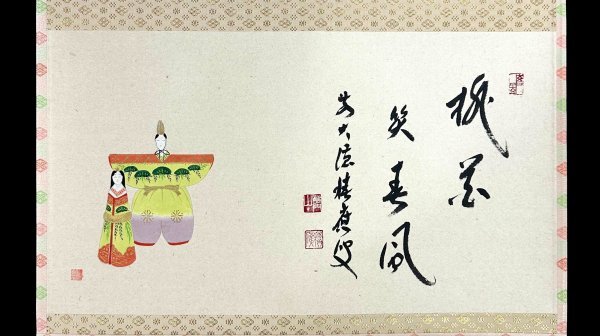 桃花
笑春風
前大徳積應叟